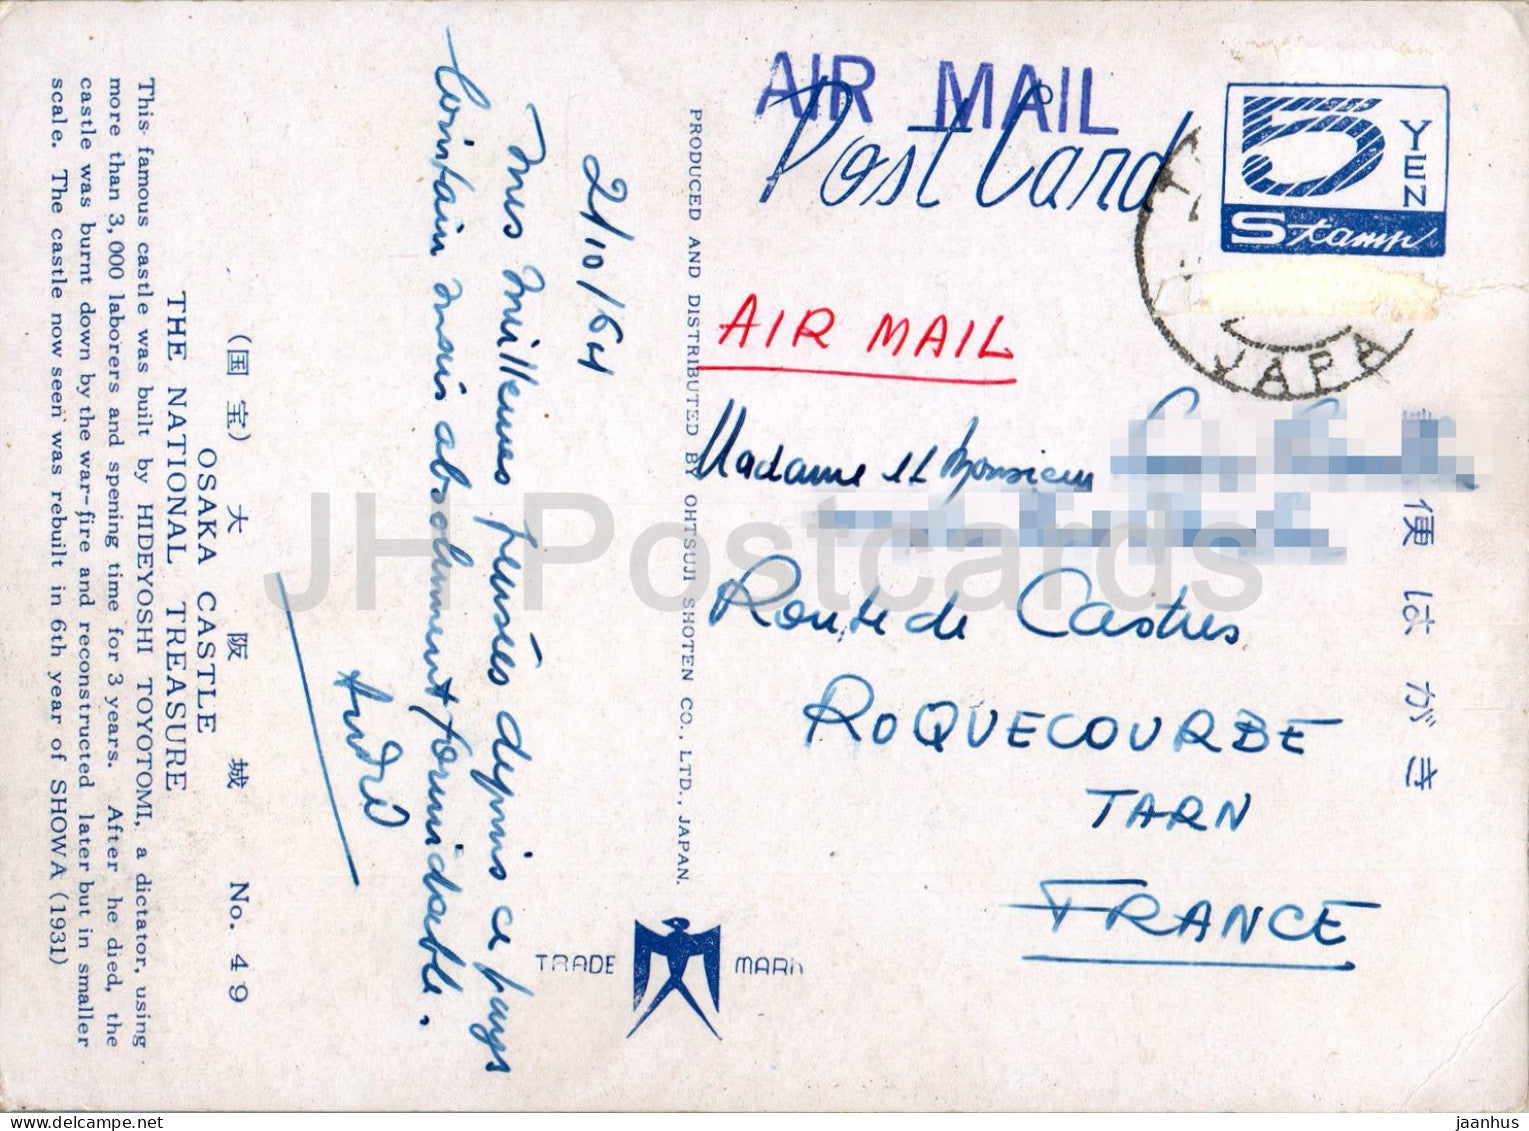 AIR MAIL
Post Card
5 YEN
Stamp
JAPA
AIR MAIL
Madame et Monsieur
Route de Castres
ROQUECOURBE
TARN
FRANCE
便はがき
PRODUCED AND DISTRIBUTED BY OHTSUJI SHOTEN CO., LTD., JAPAN.
TRADE MARK
2/10/64
Mes meilleures pensées depuis ce pays
lointain mais absolument formidable.
André
(国宝) 大阪城 No. 49
OSAKA CASTLE
THE NATIONAL TREASURE
This famous castle was built by HIDEYOSHI TOYOTOMI, a dictator, using
more than 3,000 laborers and spening time for 3 years. After he died, the
castle was burnt down by the war-fire and reconstructed later but in smaller
scale. The castle now seen was rebuilt in 6th year of SHOWA (1931)
JH Postcards
jaanhus